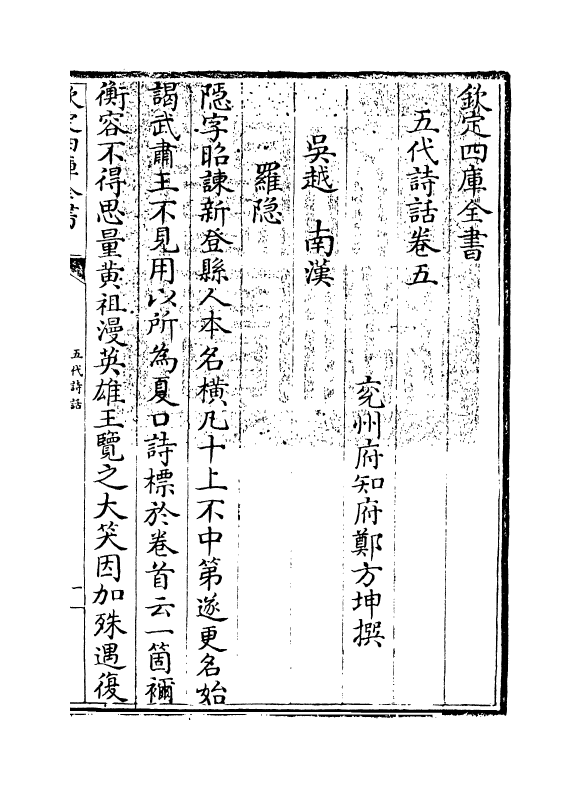 欽定四庫全書
五代詩話卷五
兖州府知府鄭方坤撰
吳越　南漢
羅隐
隠字昭諫新登縣人本名橫凡十上不中第遂更名始
謁武肅王不見用以所為夏口詩標於卷首云一箇禰
衡容不得思量黄祖漫英雄王覽之大笑因加殊遇復
欽定四庫全書
五代詩話
一